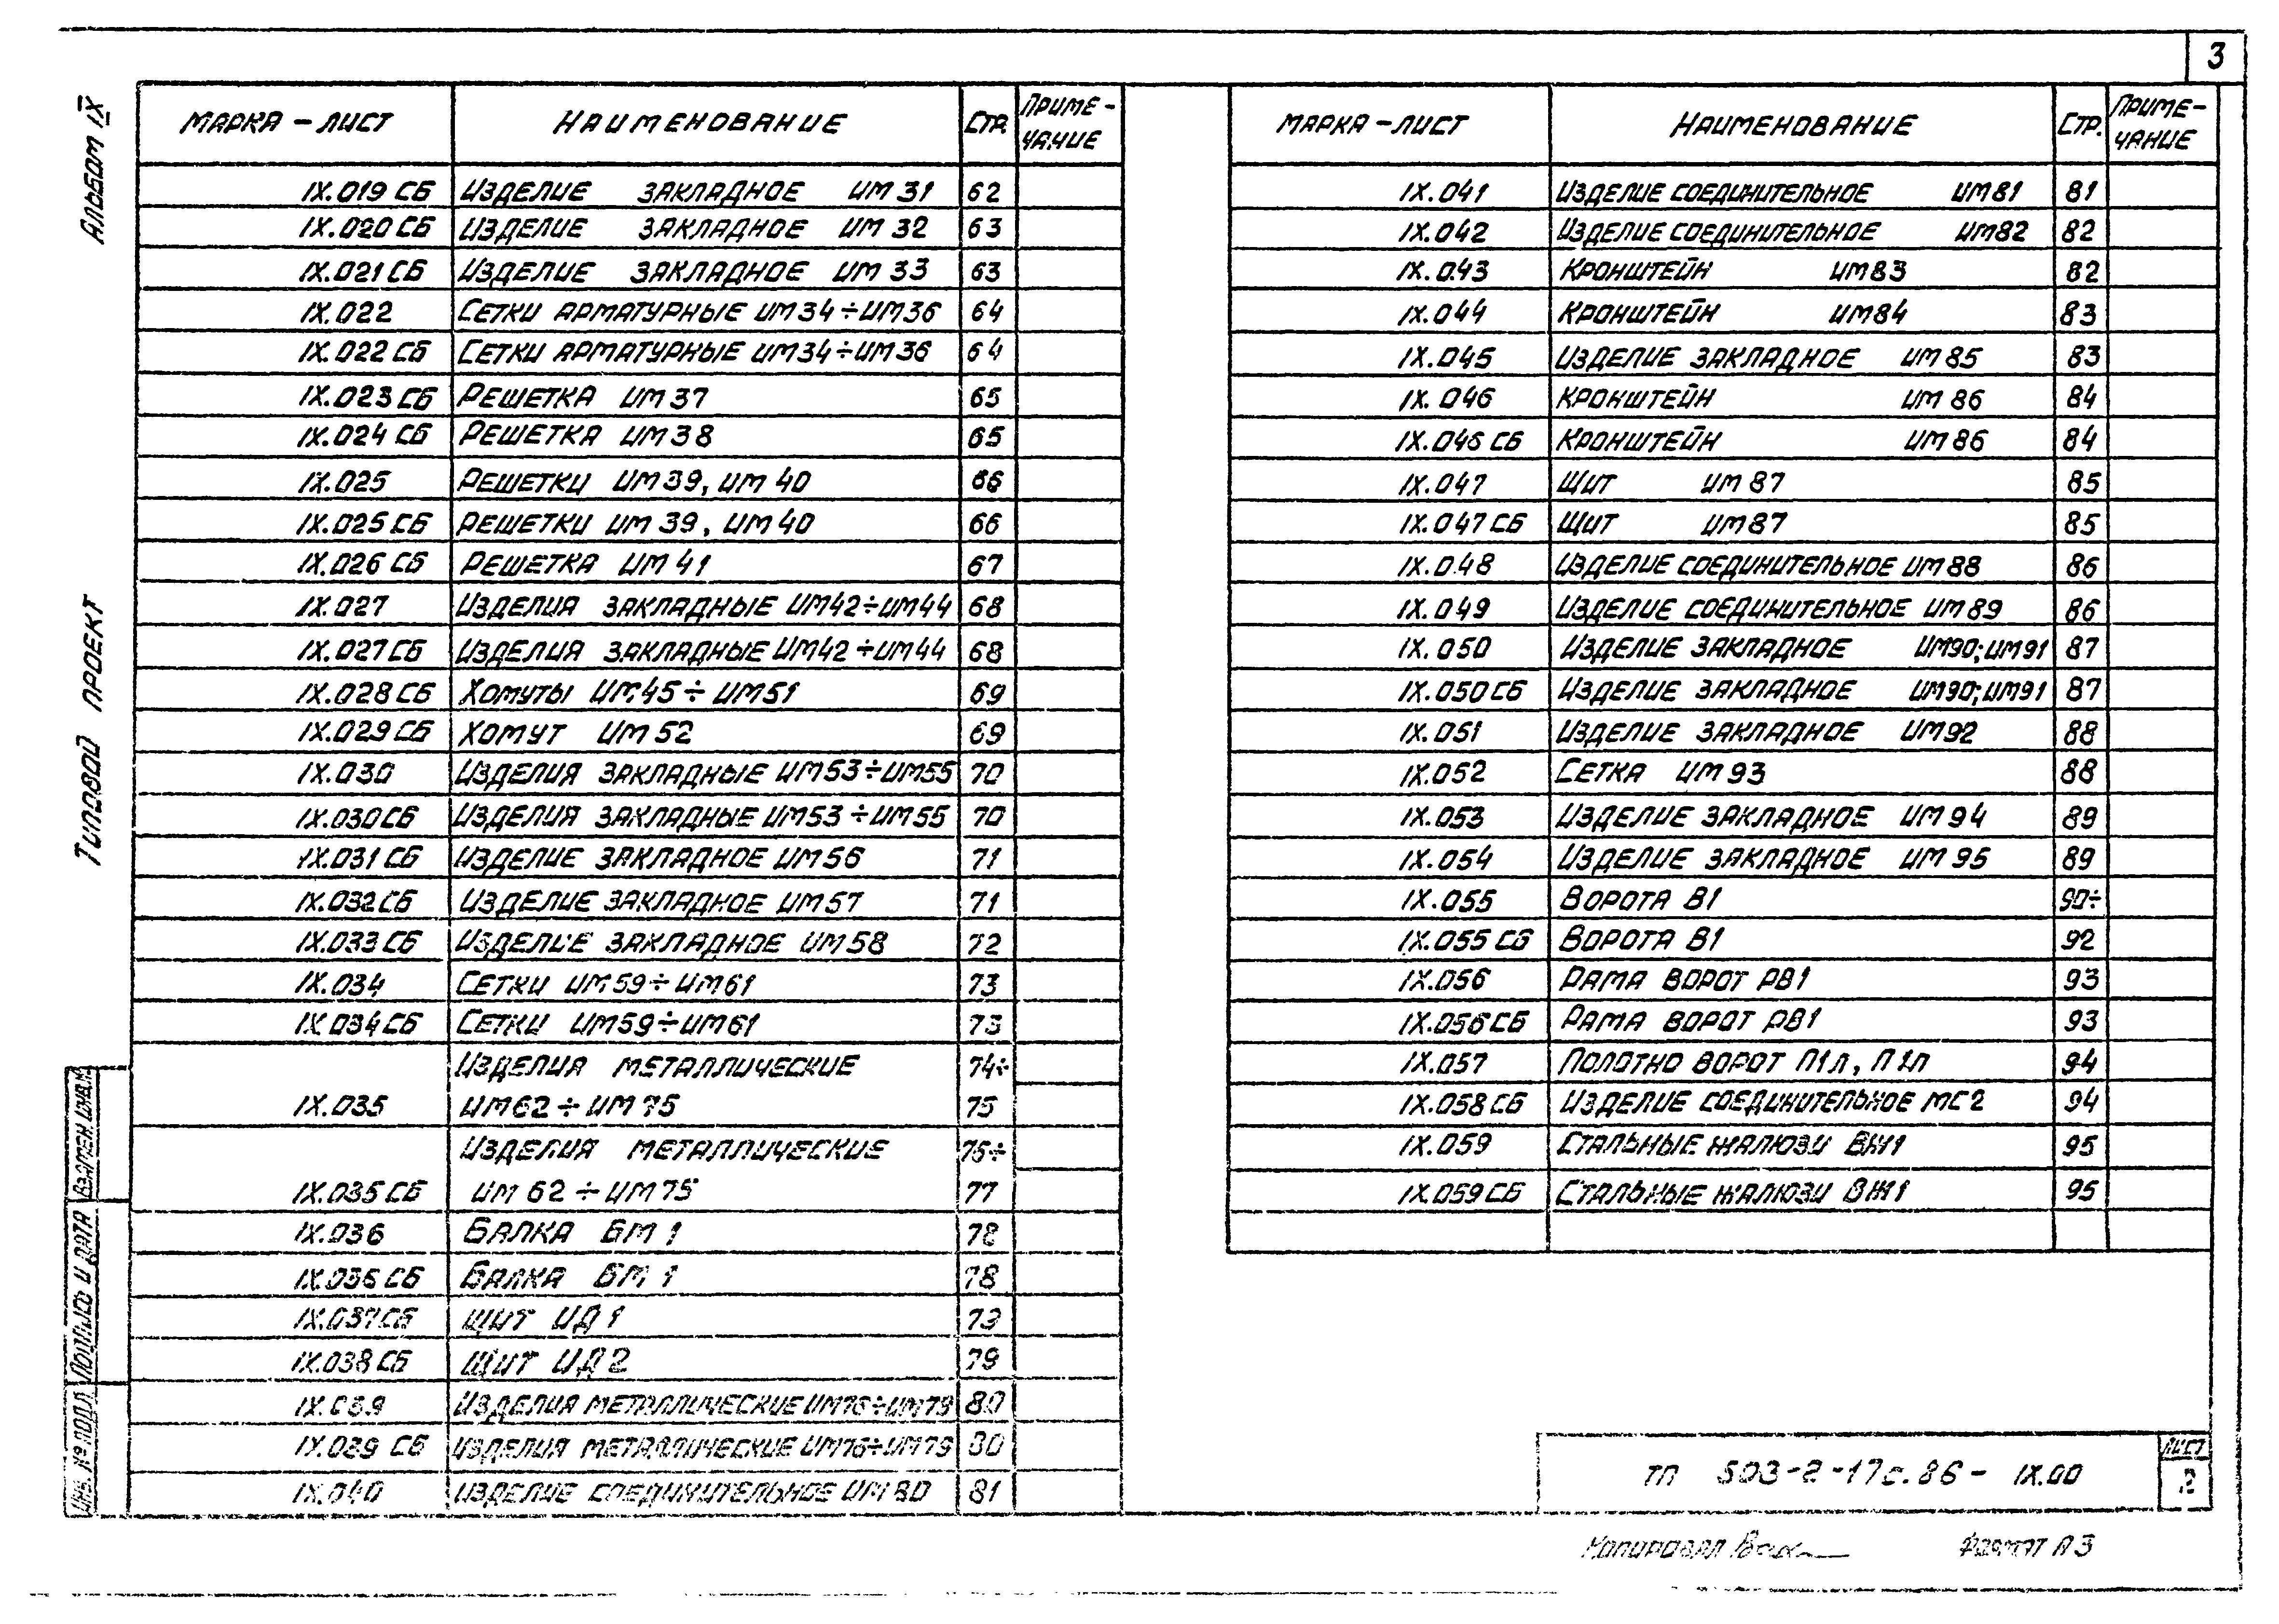 3
Альбом IX
Типовой проект
МАРКА – ЛИСТ НАИМЕНОВАНИЕ СТР. ПРИМЕ-
ЧАНИЕ
IX.019 СБ ИЗДЕЛИЕ ЗАКЛАДНОЕ ИМ 31 62
IX.020 СБ ИЗДЕЛИЕ ЗАКЛАДНОЕ ИМ 32 63
IX.021 СБ ИЗДЕЛИЕ ЗАКЛАДНОЕ ИМ 33 63
IX.022 СЕТКИ АРМАТУРНЫЕ ИМ 34÷ИМ36 64
IX.022 СБ СЕТКИ АРМАТУРНЫЕ ИМ34÷ИМ36 64
IX.023 СБ РЕШЕТКА ИМ 37 65
IX.024 СБ РЕШЕТКА ИМ 38 65
IX.025 РЕШЕТКИ ИМ 39, ИМ 40 66
IX.025 СБ РЕШЕТКИ ИМ 39, ИМ 40 66
IX.026 СБ РЕШЕТКА ИМ 41 67
IX.027 ИЗДЕЛИЯ ЗАКЛАДНЫЕ ИМ42÷ИМ44 68
IX.027 СБ ИЗДЕЛИЯ ЗАКЛАДНЫЕ ИМ42÷ИМ44 68
IX.028 СБ ХОМУТЫ ИМ45÷ИМ51 69
IX.029 СБ ХОМУТ ИМ 52 69
IX.030 ИЗДЕЛИЯ ЗАКЛАДНЫЕ ИМ53÷ИМ55 70
IX.030 СБ ИЗДЕЛИЯ ЗАКЛАДНЫЕ ИМ53÷ИМ55 70
IX.031 СБ ИЗДЕЛИЕ ЗАКЛАДНОЕ ИМ56 71
IX.032 СБ ИЗДЕЛИЕ ЗАКЛАДНОЕ ИМ57 71
IX.033 СБ ИЗДЕЛИЕ ЗАКЛАДНОЕ ИМ58 72
IX.034 СЕТКИ ИМ59÷ИМ61 73
IX.034 СБ СЕТКИ ИМ59÷ИМ61 73
ИЗДЕЛИЯ МЕТАЛЛИЧЕСКИЕ 74÷
IX.035 ИМ62÷ИМ75 75
ИЗДЕЛИЯ МЕТАЛЛИЧЕСКИЕ 75÷
IX.035 СБ ИМ 62÷ИМ75 77
IX.036 БАЛКА БМ 1 78
IX.036 СБ БАЛКА БМ 1 78
IX.037 СБ ЩИТ ИД 1 79
IX.038 СБ ЩИТ ИД 2 79
IX.039 ИЗДЕЛИЯ МЕТАЛЛИЧЕСКИЕ ИМ76÷ИМ79 80
IX.039 СБ ИЗДЕЛИЯ МЕТАЛЛИЧЕСКИЕ ИМ76÷ИМ79 80
IX.040 ИЗДЕЛИЕ СОЕДИНИТЕЛЬНОЕ ИМ 80 81
МАРКА – ЛИСТ НАИМЕНОВАНИЕ СТР. ПРИМЕ-
ЧАНИЕ
IX.041 ИЗДЕЛИЕ СОЕДИНИТЕЛЬНОЕ ИМ81 81
IX.042 ИЗДЕЛИЕ СОЕДИНИТЕЛЬНОЕ ИМ82 82
IX.043 КРОНШТЕЙН ИМ83 82
IX.044 КРОНШТЕЙН ИМ84 83
IX.045 ИЗДЕЛИЕ ЗАКЛАДНОЕ ИМ 85 83
IX.046 КРОНШТЕЙН ИМ 86 84
IX.046 СБ КРОНШТЕЙН ИМ 86 84
IX.047 ЩИТ ИМ 87 85
IX.047 СБ ЩИТ ИМ87 85
IX.048 ИЗДЕЛИЕ СОЕДИНИТЕЛЬНОЕ ИМ 88 86
IX.049 ИЗДЕЛИЕ СОЕДИНИТЕЛЬНОЕ ИМ 89 86
IX.050 ИЗДЕЛИЕ ЗАКЛАДНОЕ ИМ90; ИМ91 87
IX.050 СБ ИЗДЕЛИЕ ЗАКЛАДНОЕ ИМ90; ИМ91 87
IX.051 ИЗДЕЛИЕ ЗАКЛАДНОЕ ИМ92 88
IX.052 СЕТКА ИМ 93 88
IX.053 ИЗДЕЛИЕ ЗАКЛАДНОЕ ИМ 94 89
IX.054 ИЗДЕЛИЕ ЗАКЛАДНОЕ ИМ 95 89
IX.055 ВОРОТА В1 90÷
IX.055 СБ ВОРОТА В1 92
IX.056 РАМА ВОРОТ РВ1 93
IX.056 СБ РАМА ВОРОТ РВ1 93
IX.057 ПОЛОТНО ВОРОТ П1л, П1п 94
IX.058 СБ ИЗДЕЛИЕ СОЕДИНИТЕЛЬНОЕ МС2 94
IX.059 СТАЛЬНЫЕ ЖАЛЮЗИ ВЖ1 95
IX.059 СБ СТАЛЬНЫЕ ЖАЛЮЗИ ВЖ1 95
Взамен инв.№
Подпись и дата
Инв. № подл.
ТП 503-2-17с.86 – IX.00
Лист
2
Копировал
Формат А3